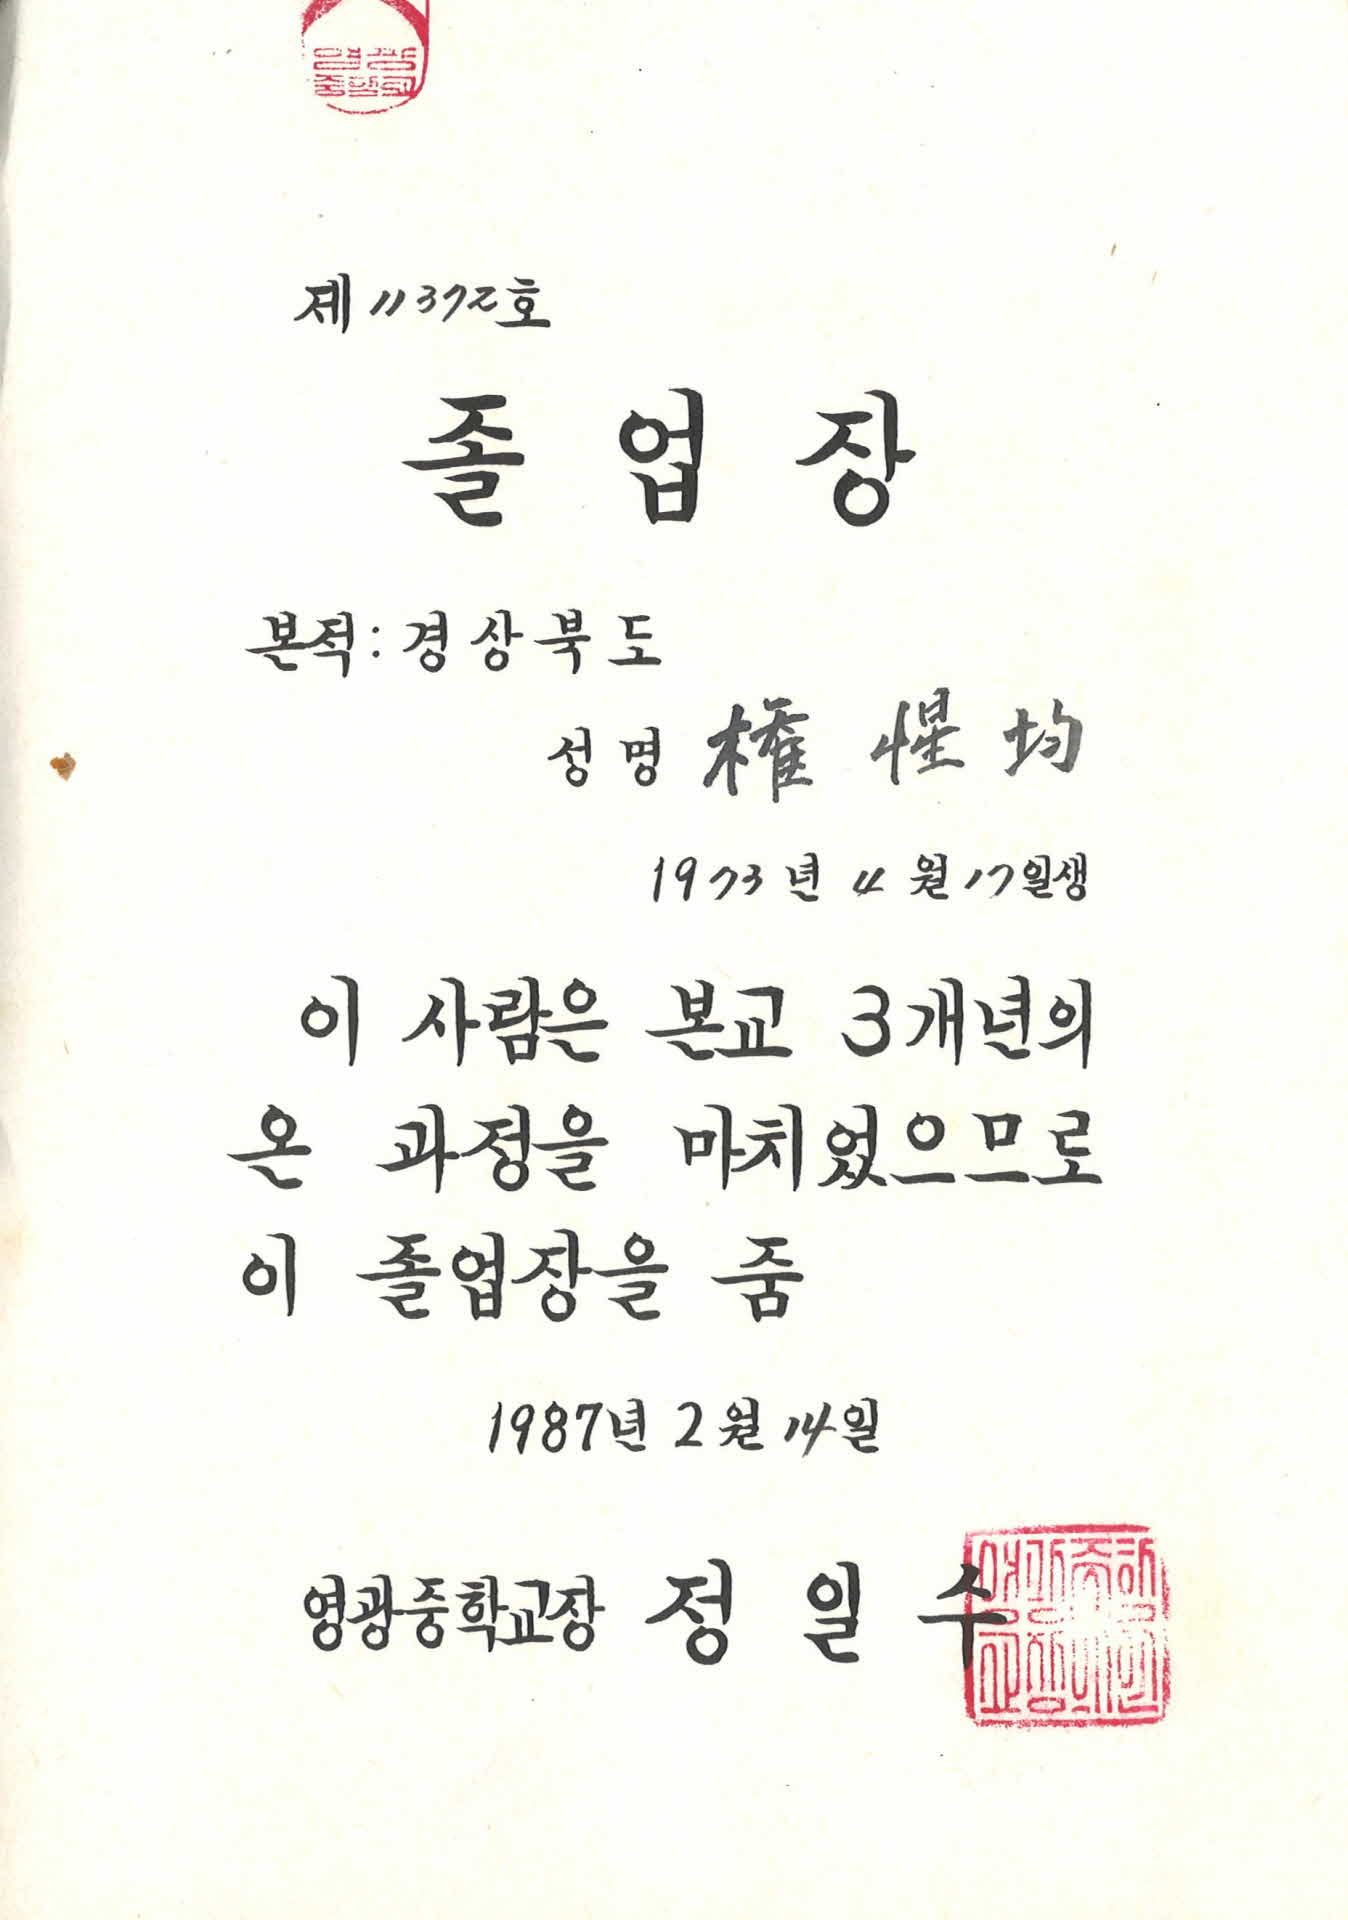 제 11372호
졸 업 장
본적: 경상북도
성명 權 惺 均
1973년 4월 17일생
이 사람은 본교 3개년의
온 과정을 마치었으므로
이 졸업장을 줌
1987년 2월 14일
영광중학교장 정 일 수